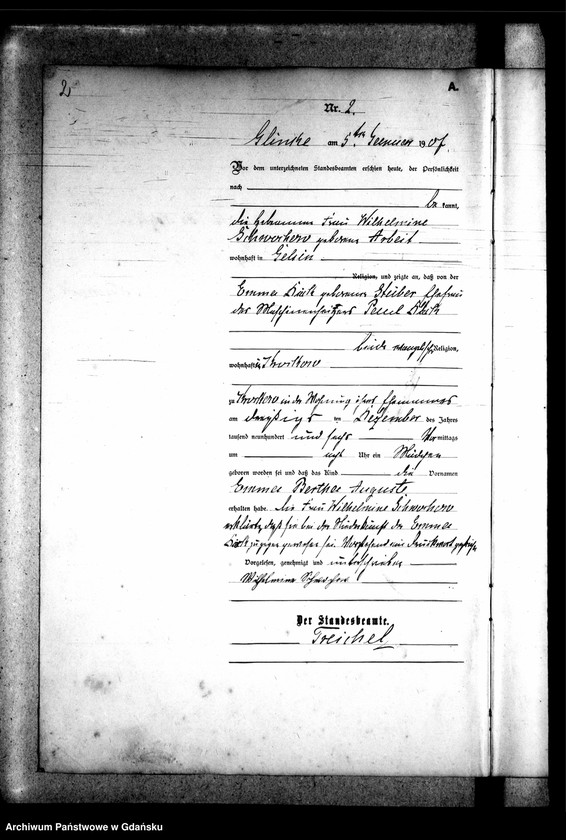 2
A.
Nr. 2.
am 5ten Januar 1907.
Vor dem unterzeichneten Standesbeamten erschien heute, der Persönlichkeit
nach
be kannt,
die Hebamme Frau Wilhelmine
geborene Arbeit
wohnhaft in Gelsin
Religion, und zeigte an, daß von der
Emma geborene Stüber Ehefrau
des Maschinenheizers Paul
beide evangelischer Religion,
wohnhaft in Krockow
zu Krockow in der Wohnung ihres Ehemannes
am dreißigsten Dezember des Jahres
tausend neunhundert und sechs Vormittags
um acht Uhr ein Mädchen
geboren worden sei und daß das Kind die Vornamen
Emma Bertha Auguste
erhalten habe. Die Frau Wilhelmine
erklärte, daß sie bei der Niederkunft der Emma
zugegen gewesen sei. Vorstehend ein Druckwort gestrichen
Vorgelesen, genehmigt und unterschrieben
Wilhelmine
Der Standesbeamte.
Treichel
Archiwum Państwowe w Gdańsku